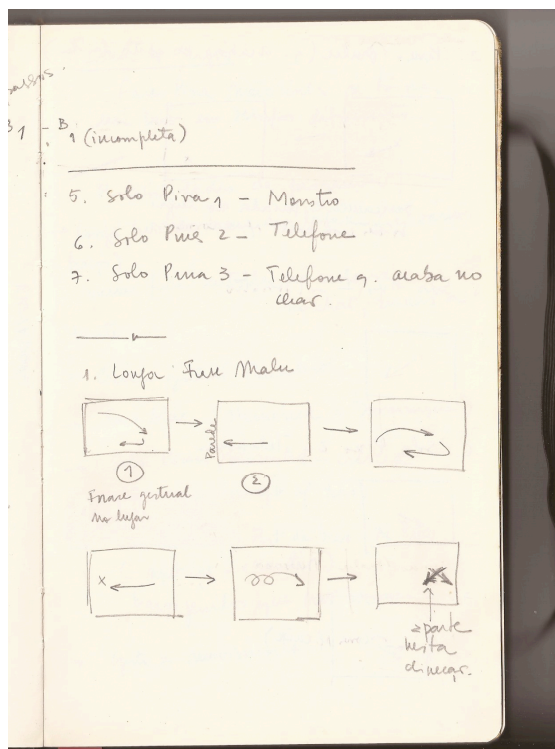 B1 - B1 (incompleta)
5. Solo Pina 1 - Monstro
6. Solo Pina 2 - Telefone
7. Solo Pina 3 - Telefone q. acaba no
chão.
1. Longa Frase Malu
Parede
1
2
Frase gestual
no lugar
x
2 parte
nesta
direção.